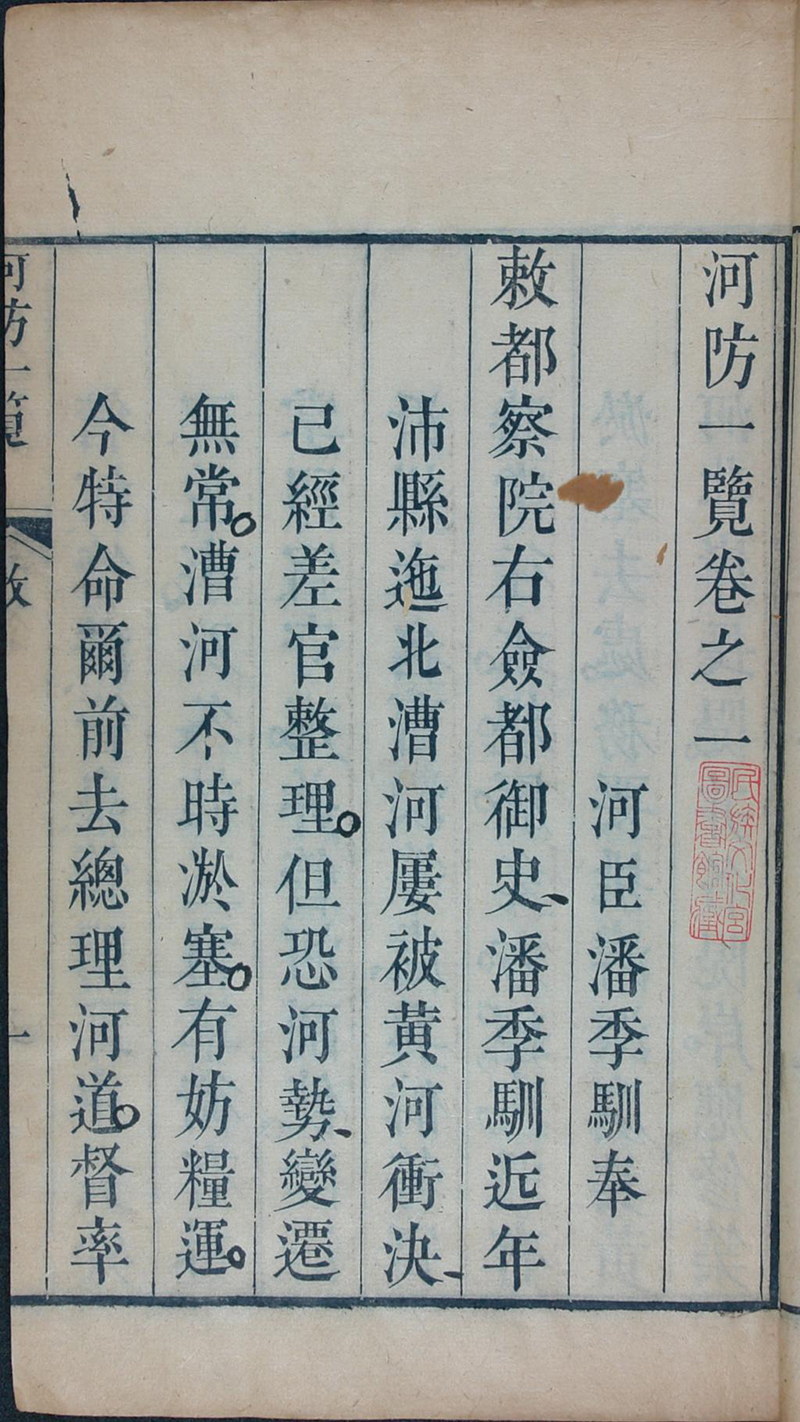 河防一覽卷之一
民族文化宮
圖書館藏
河臣潘季馴奉
敕都察院右僉都御史、潘季馴近年
沛縣迤北漕河屢被黄河衝決、
已經差官整理。但恐河勢、變遷
無常。漕河不時淤塞。有妨糧運。
今特命爾前去總理河道。督率
河防一覽 敕 一